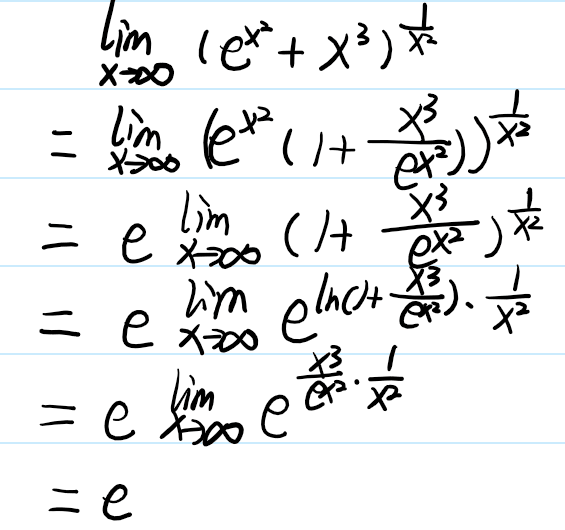 lim x→∞ (e^{x^2} + x^3)^{1/x^2}
= lim x→∞ (e^{x^2} (1 + x^3/e^{x^2}))^{1/x^2}
= e lim x→∞ (1 + x^3/e^{x^2})^{1/x^2}
= e lim x→∞ e^{ln(1 + x^3/e^{x^2}) · 1/x^2}
= e lim x→∞ e^{x^3/e^{x^2} · 1/x^2}
= e